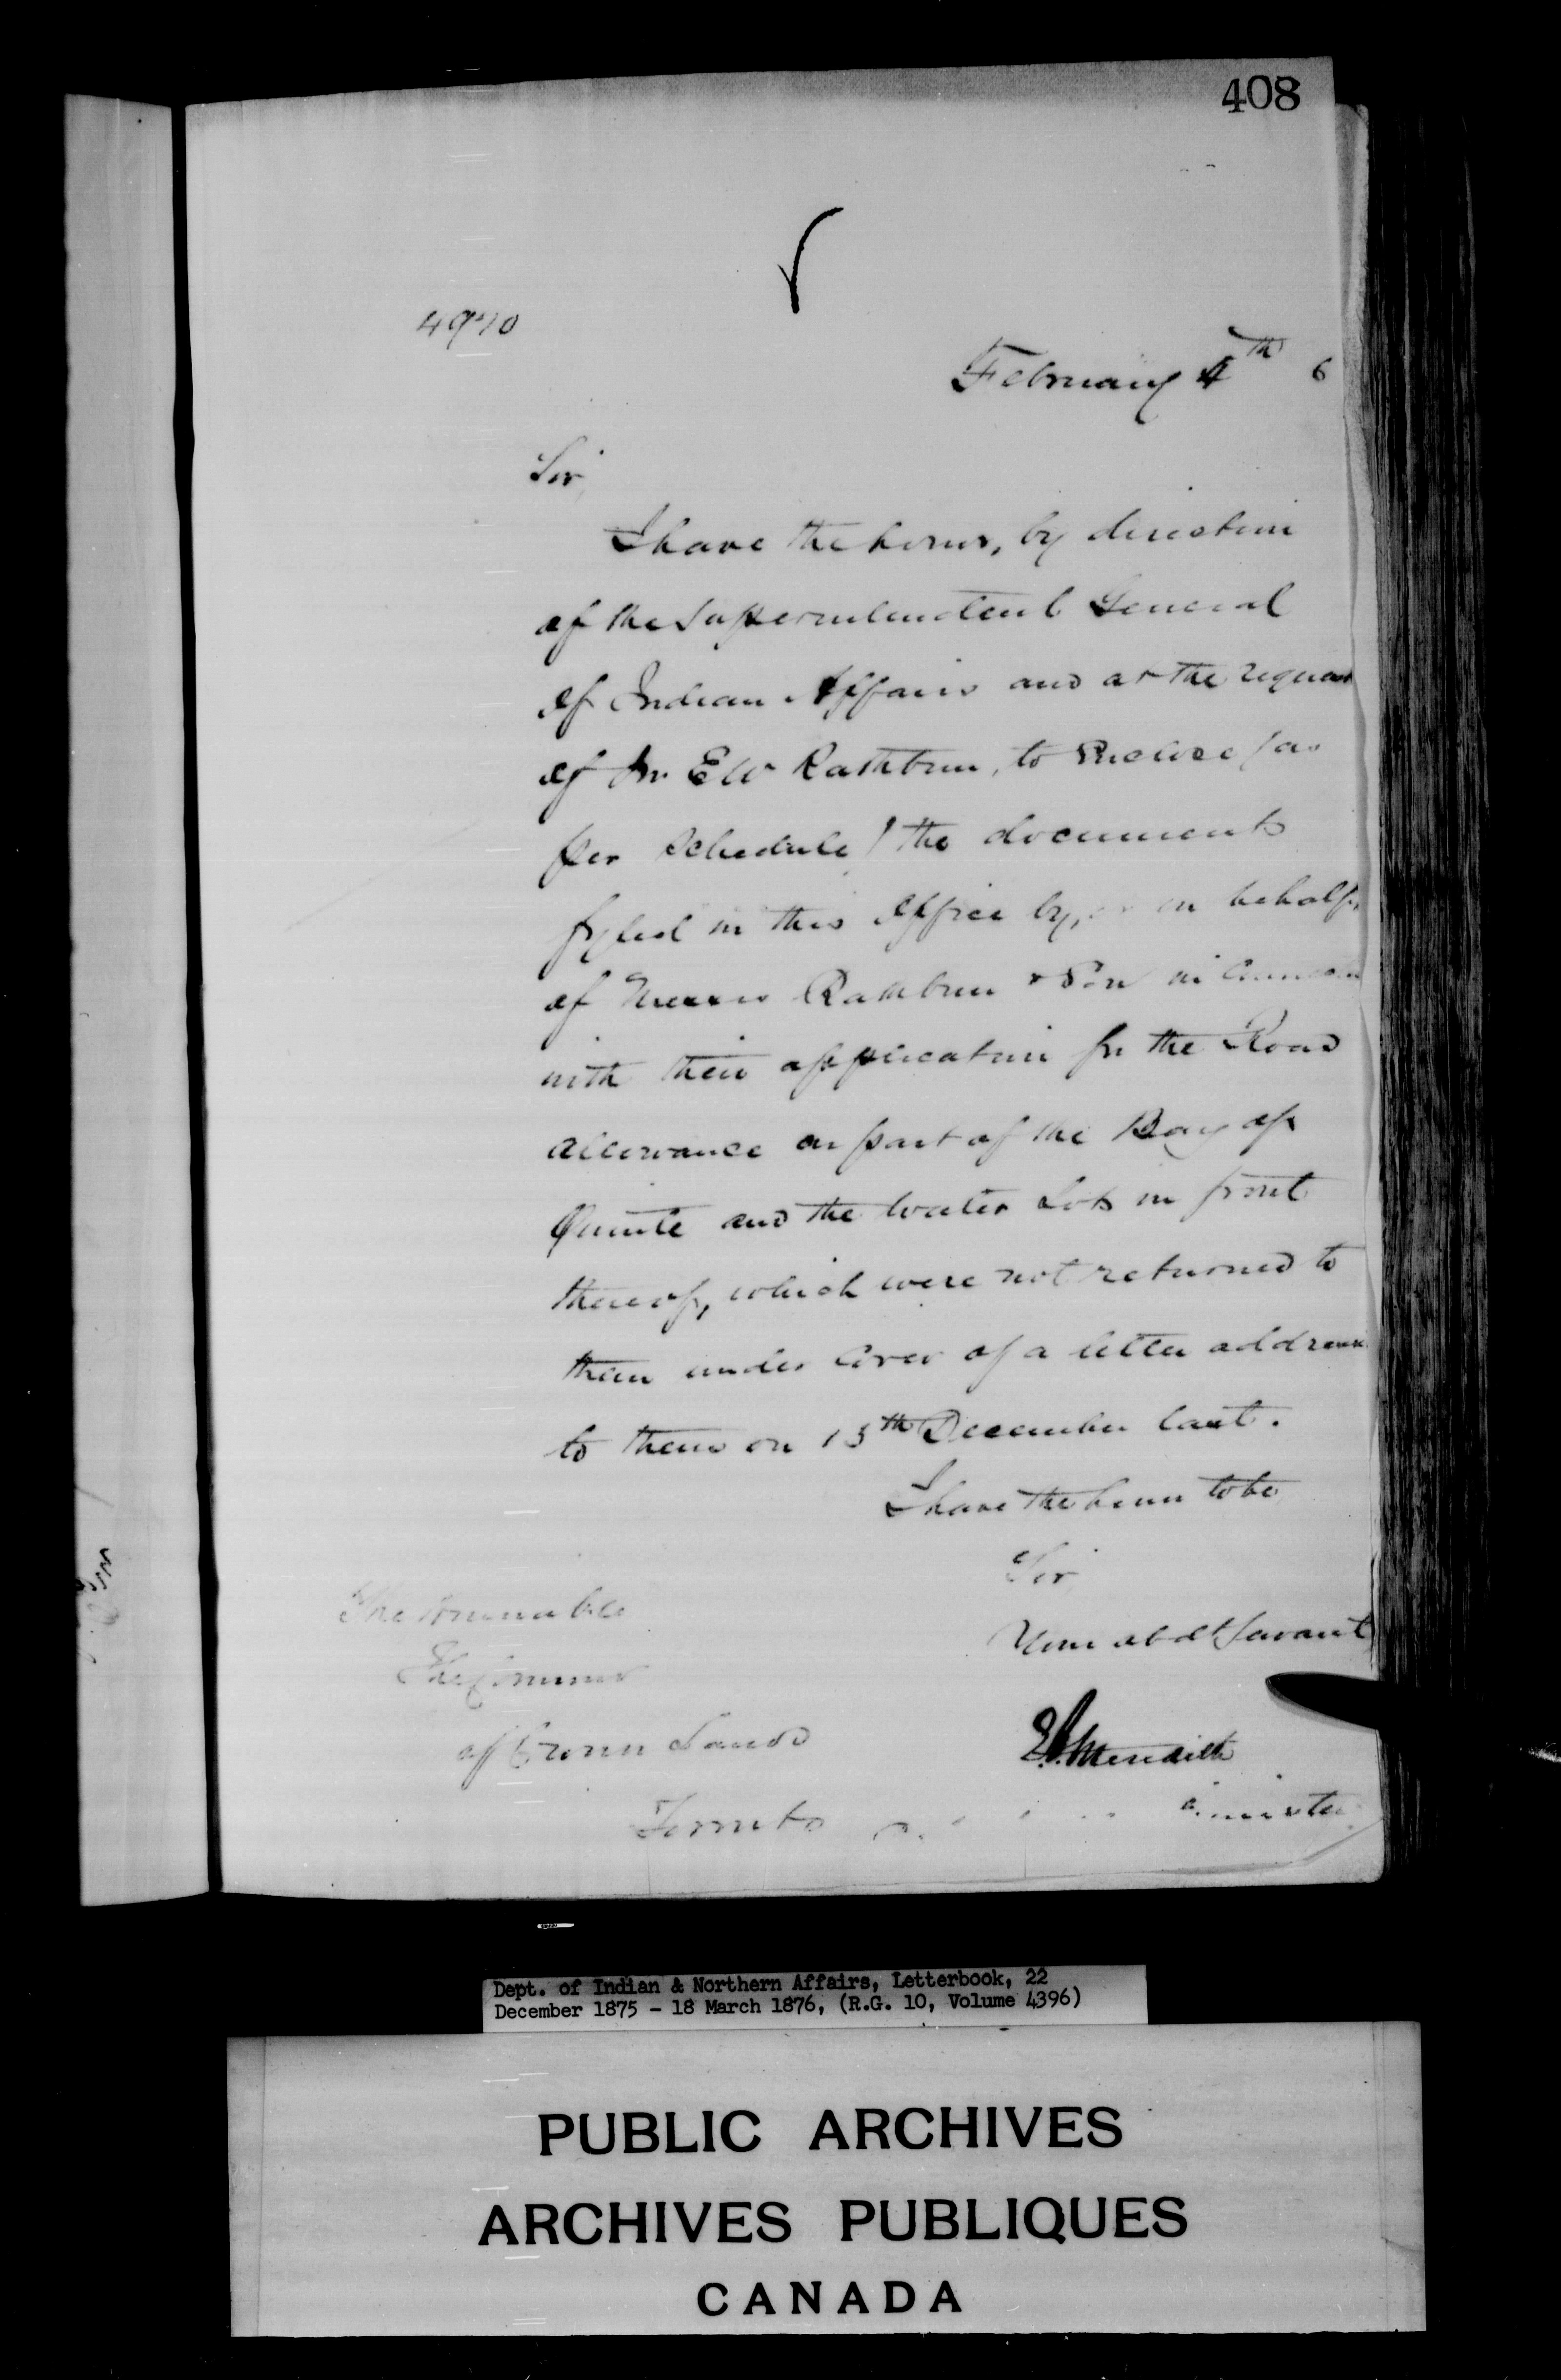 408
4970
February 4th 6
Sir,
I have the honor, by direction
of the Superintendent General
of Indian Affairs and at the request
of Mr E W Rathbun, to enclose (as
per Schedule) the documents
fyled in this Office by, or on behalf,
of Messrs Rathbun & Son in
with their application for the Road
allowance on part of the Bay of
Quinte and the Water Lots in front
thereof, which were not returned to
them under cover of a letter addressed
to them on 15th December last.
I have the honor to be
Sir
Your obdt Servant
The Honorable
The Commr
of Crown Lands
Toronto
E.A. Meredith
Minister
Dept. of Indian & Northern Affairs, Letterbook, 22
December 1875 - 18 March 1876, (R.G. 10, Volume 4396)
PUBLIC ARCHIVES
ARCHIVES PUBLIQUES
CANADA